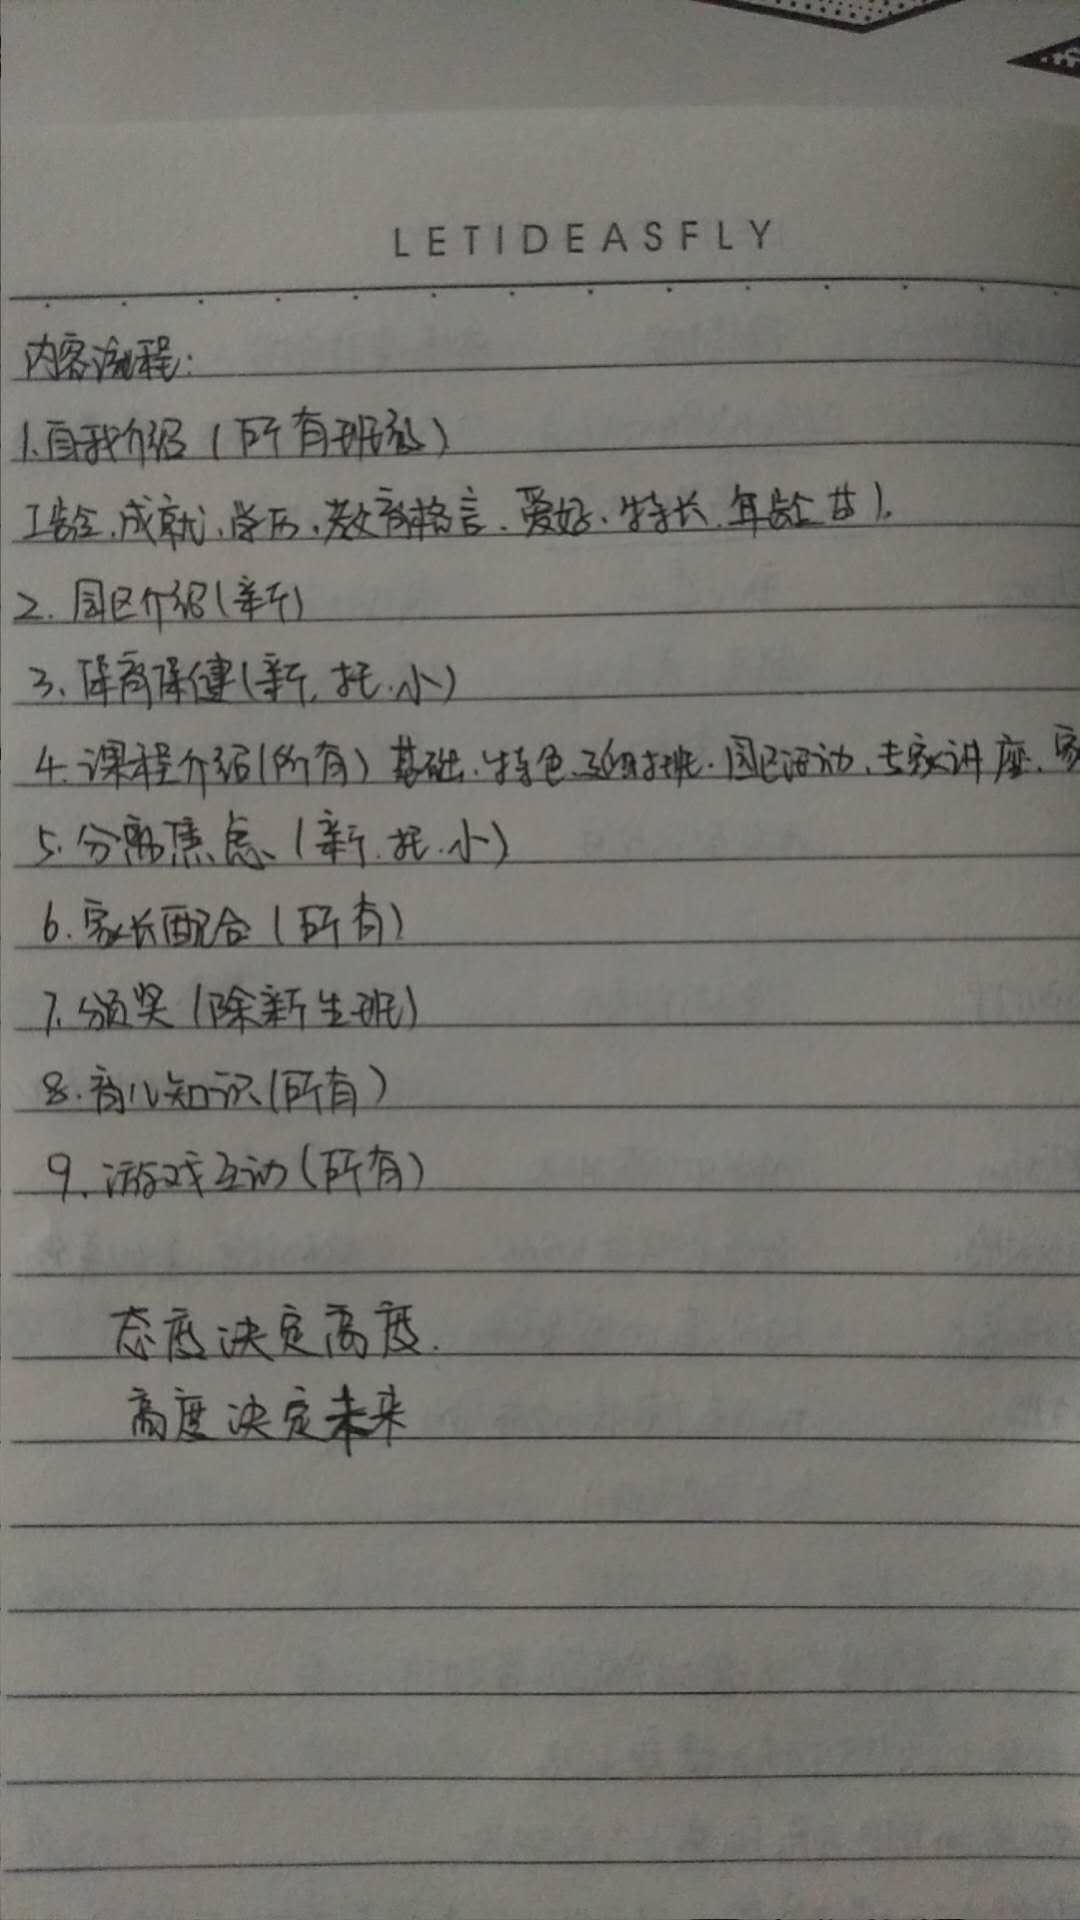 LETIDEASFLY
内容流程:
1.自我介绍(所有班级)
工龄、成就、学历、教育格言、爱好、特长、年龄苗)。
2. 园区介绍(新)
3、保育保健(新、托、小)
4. 课程介绍(所有)基础、特色、延时班、园区活动、专家讲座、家
5. 分离焦虑、(新、托、小)
6. 家长配合(所有)
7. 颁奖(除新生班)
8. 育儿知识(所有)
9. 游戏互动(所有)
态度决定高度.
高度决定未来